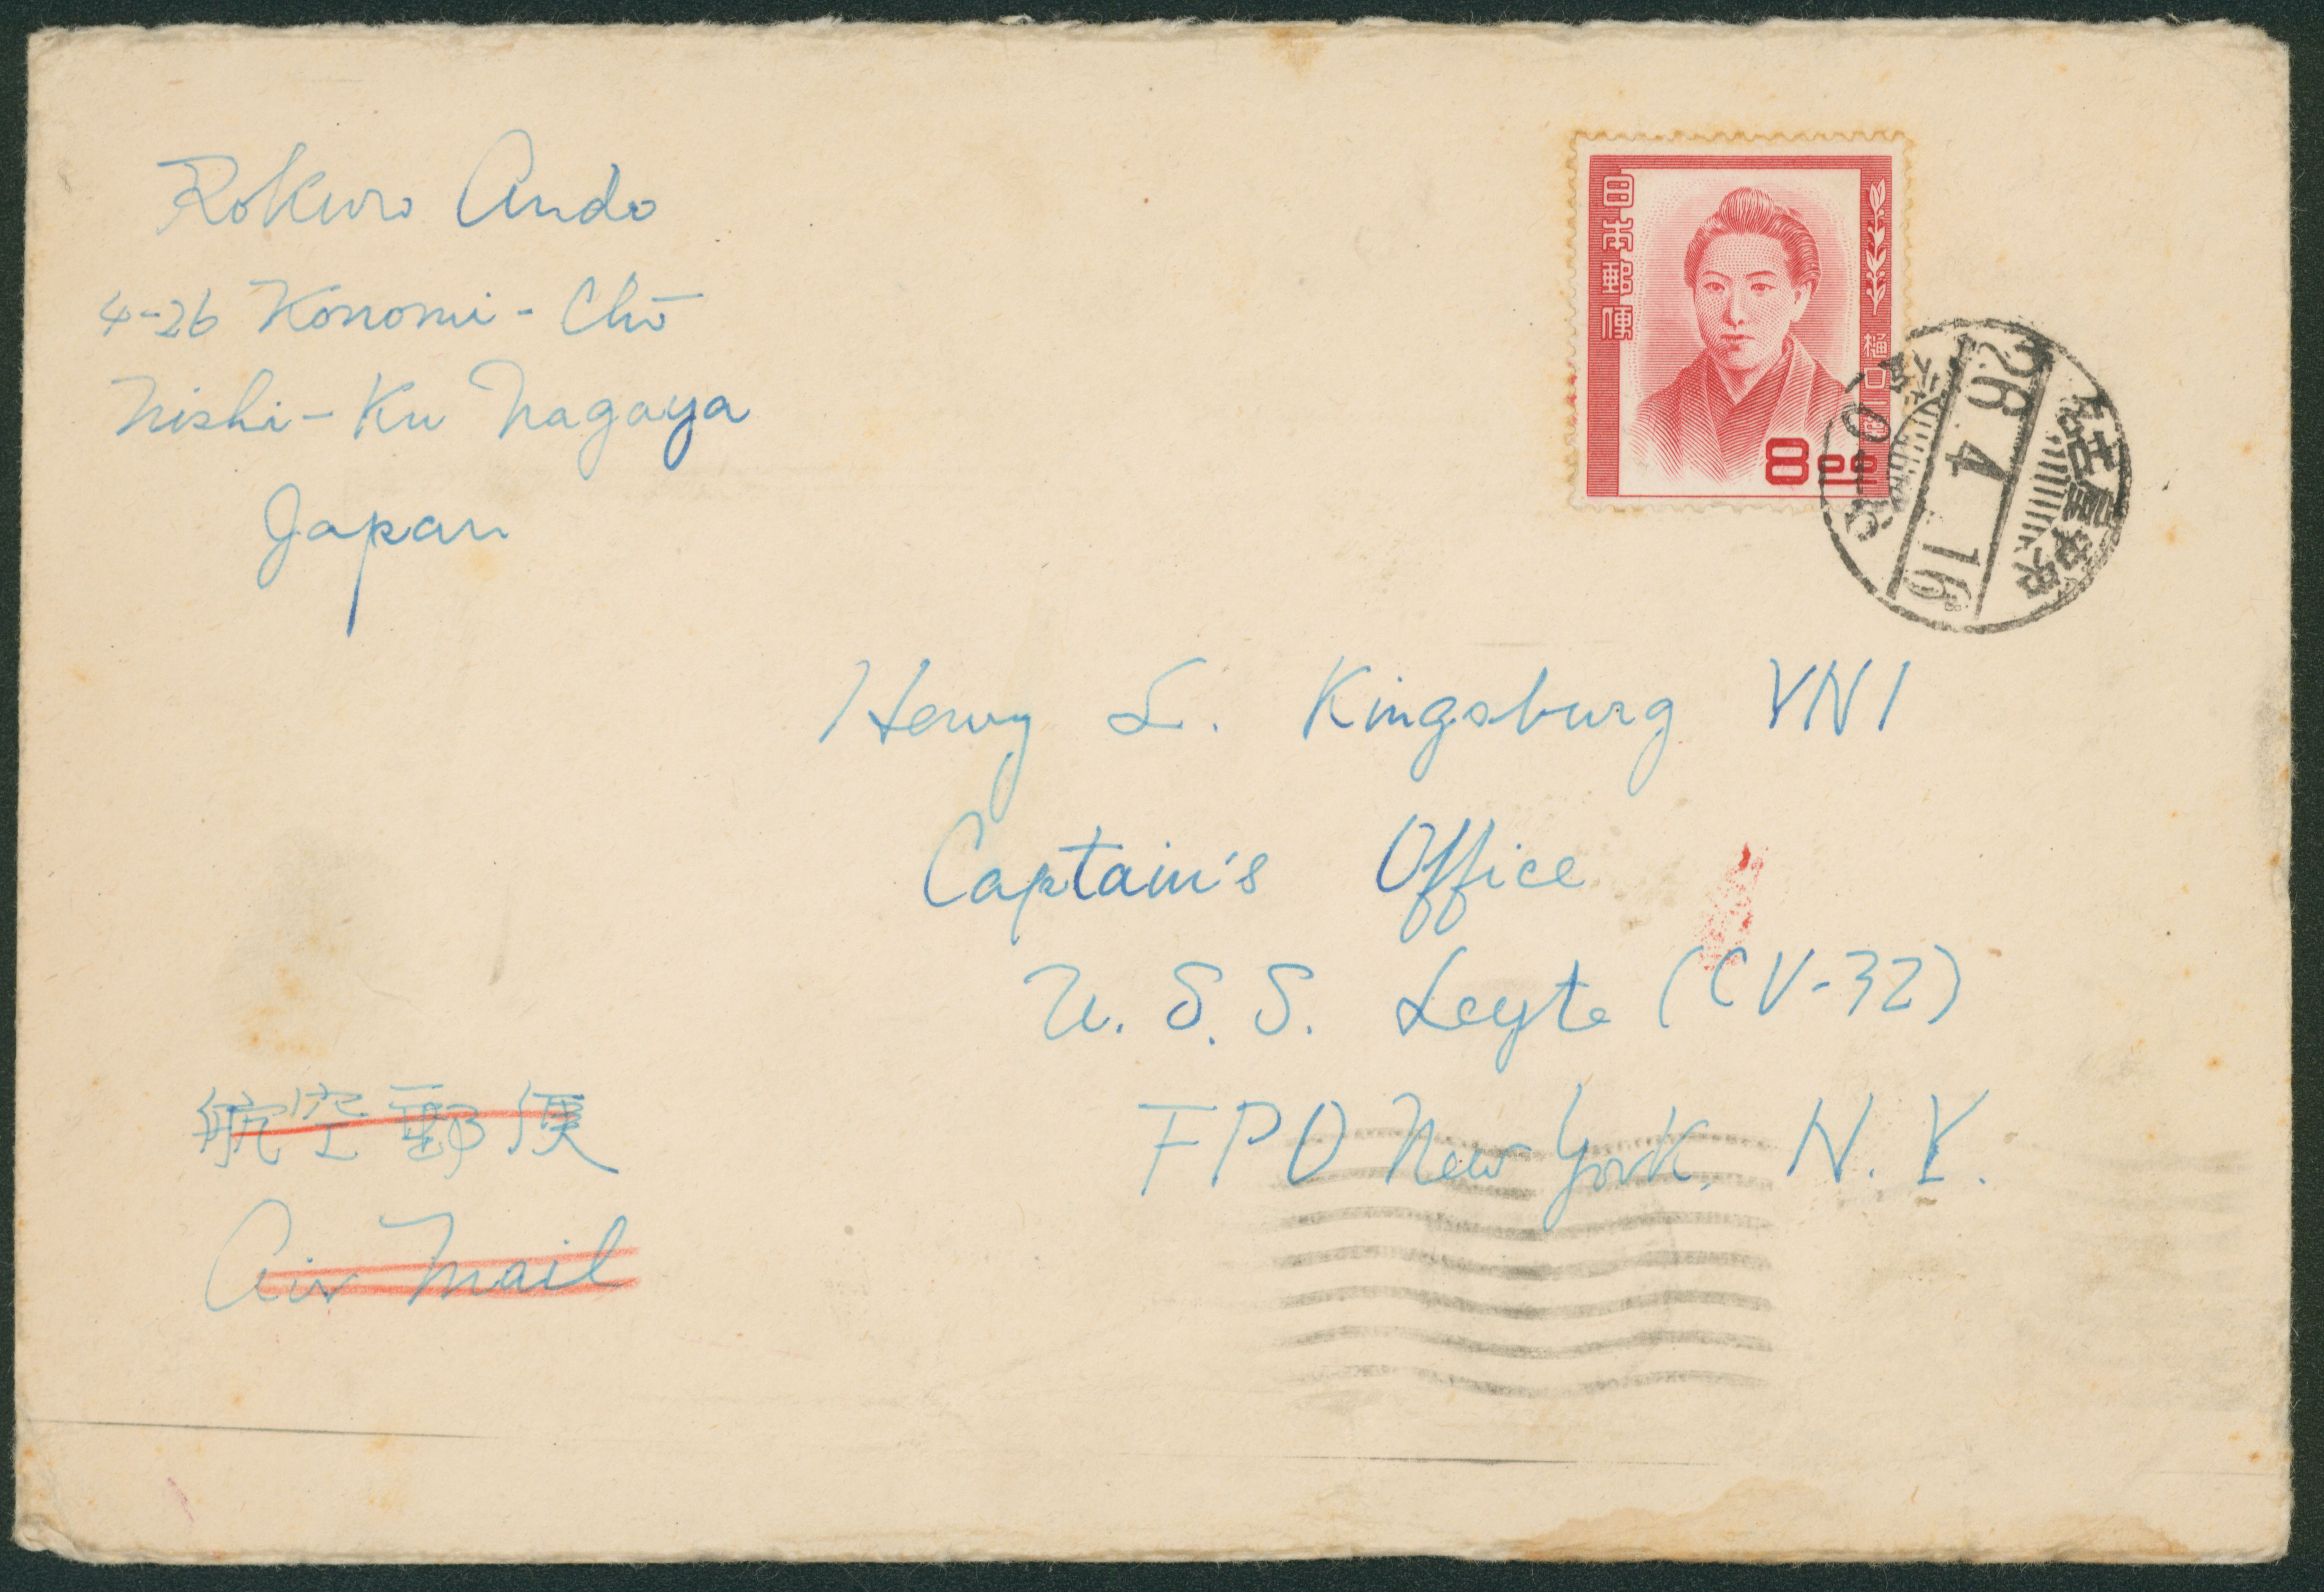 Rokuro Ando
4-26 Konomi-Chō
Nishi-Ku Nagoya
Japan
日本郵便
樋口一葉
8
名古屋中央
26 4 16
Henry L. Kingsbury YN1
Captain's Office
U.S.S. Leyte (CV-32)
FPO New York, N.Y.
航空郵便
Air Mail